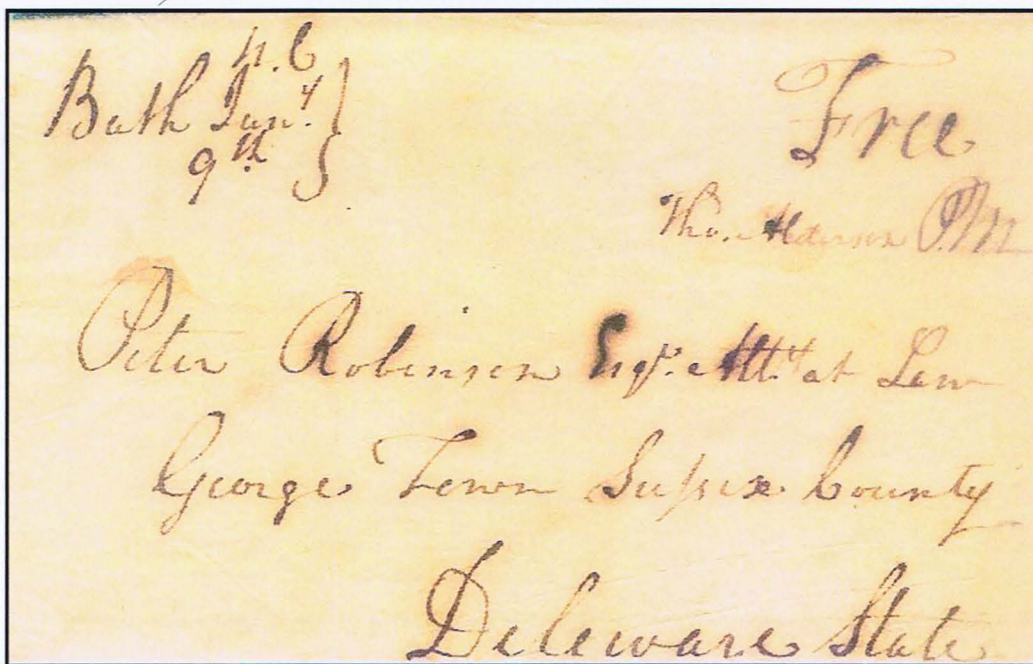 N.C
Bath Jany
9th
Free
Tho. Alderson P.M
Peter Robinson Esqr. Atty at Law
George Town Sussex County
Deleware State